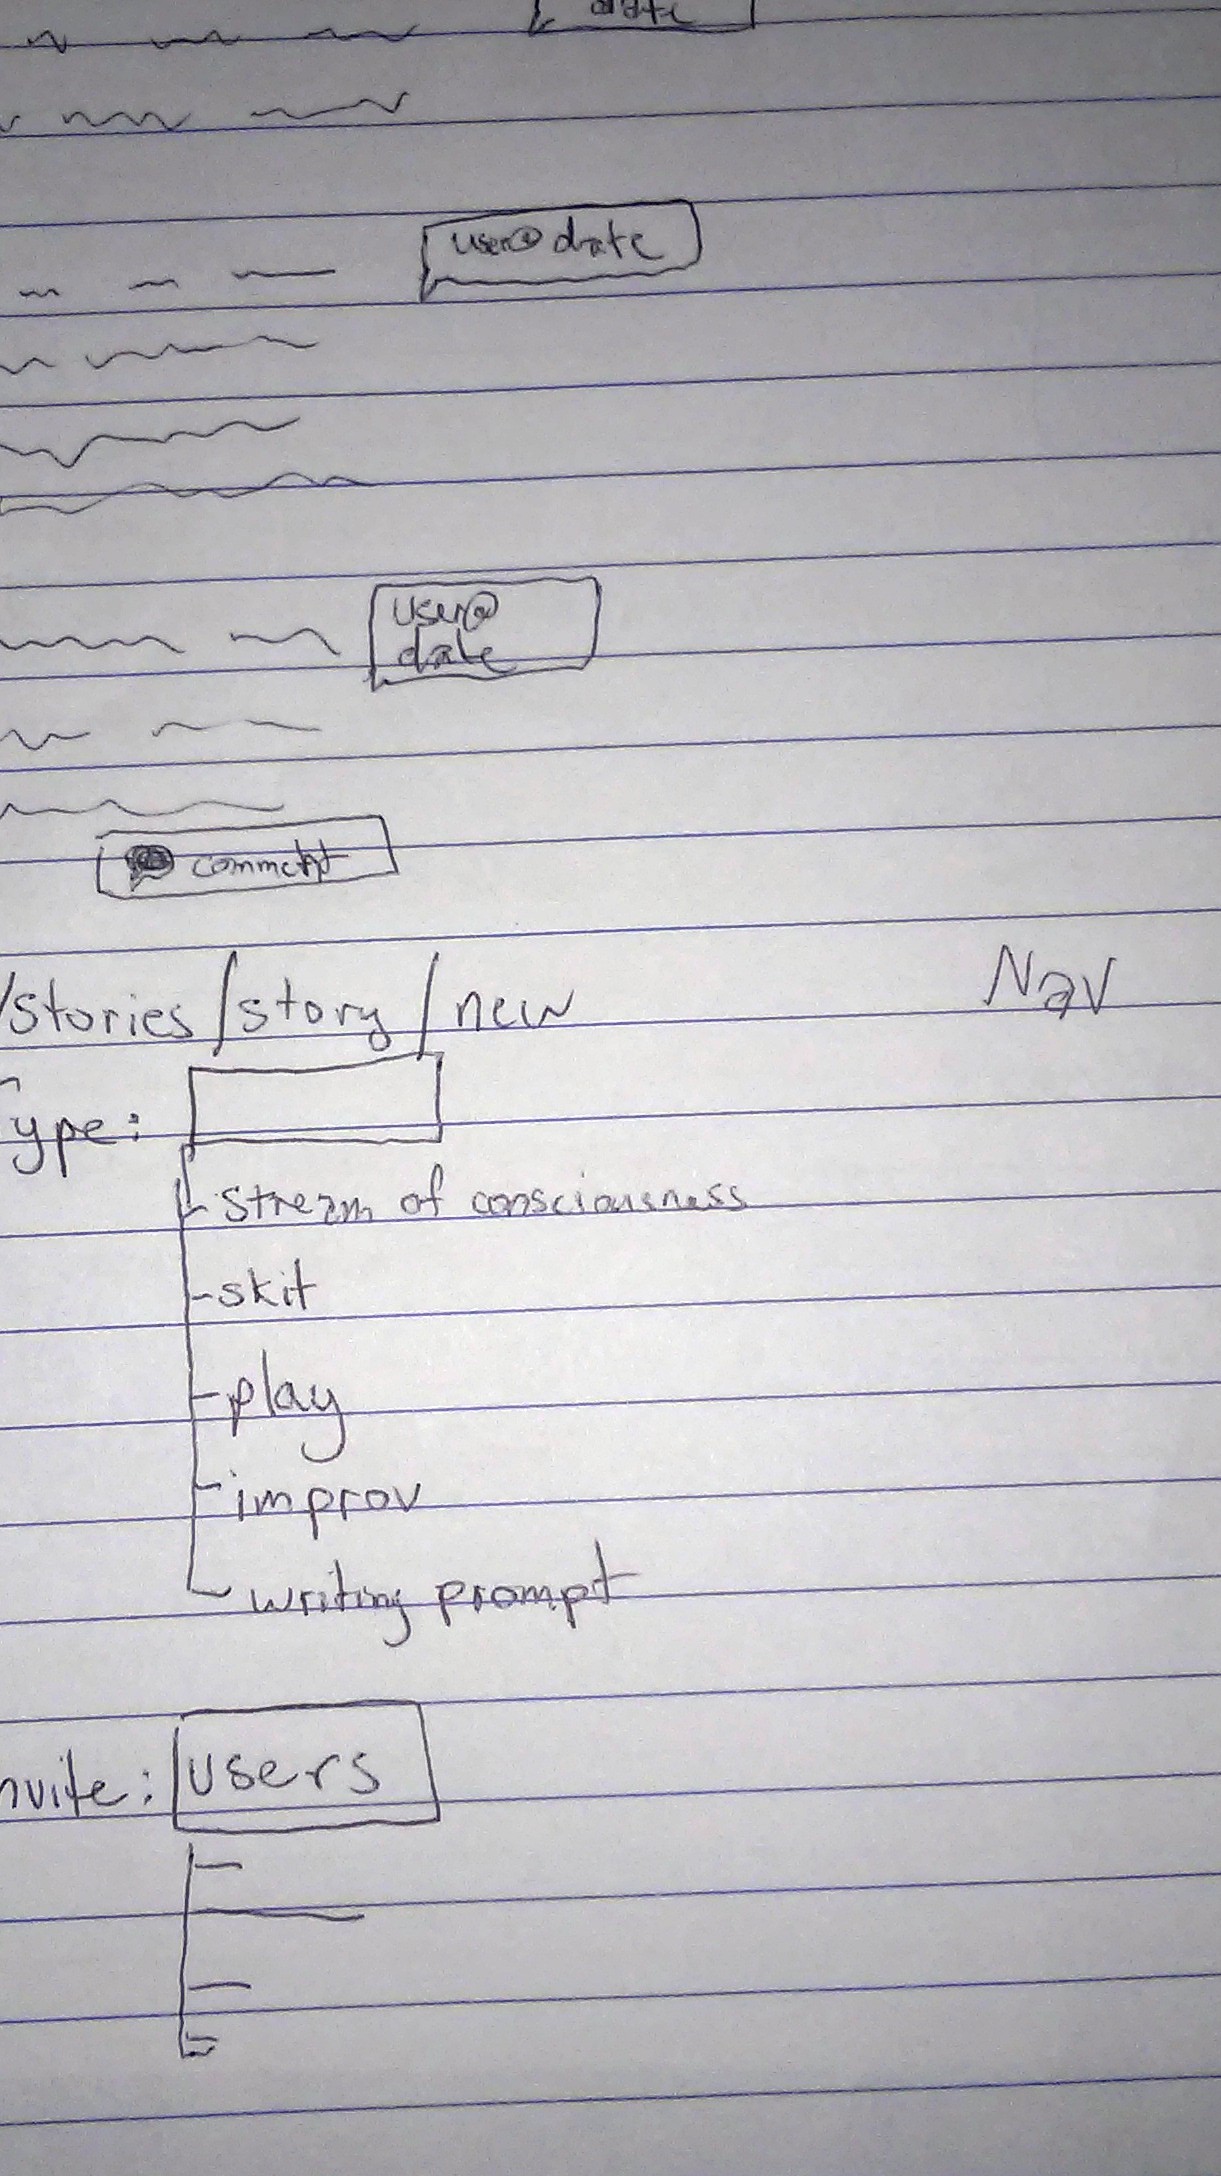 date
user@ date
user@
date
comment
/stories/story/new Nav
ype:
stream of consciousness
- skit
- play
- improv
- writing prompt
nvite: users